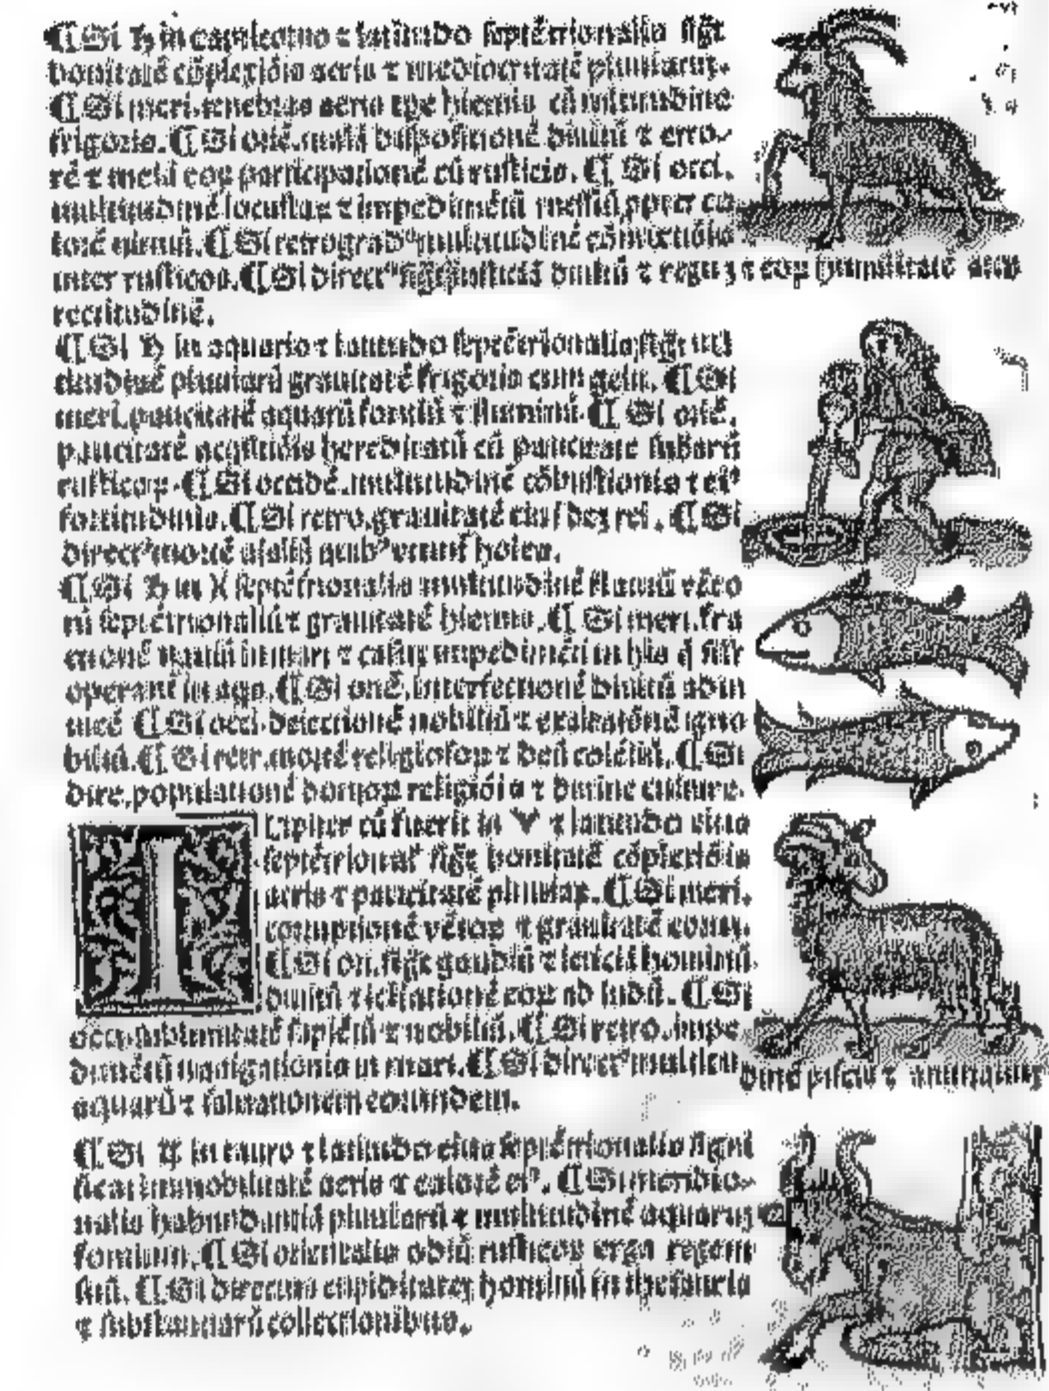 ¶ Si ♄ in capricorno ⁊ latitudo septētrionalis sīgt
bonitatē cōplexiōis aeris ⁊ mediocritatē pluuiarū.
¶ Si meri. tenebras aeris tpe hiemis cū multitudine
frigoris. ¶ Si oriē. malā dispositionē diuitū ⁊ erro-
rē ⁊ metū eoꝝ participationē cū rusticis. ¶ Si occi.
multitudinē locustaꝝ ⁊ impedimētū messiū ꝓpter ca
lorē nimiū. ¶ Si retrogradꝰ multitudinē cōuictiōis
inter rusticos. ¶ Si directꝰ iustitiā diuitū ⁊ regū ⁊ eoꝝ humilitatē atꝗ
rectitudinē.
¶ Si ♄ in aquario ⁊ latitudo septētrionalis sīgt mul
titudinē pluuiarū grauitatē frigoris cum gelu. ¶ Si
meri. paucitatē aquarū fontiū ⁊ fluminū. ¶ Si oriē.
paucitatē acq̄sitiōis hereditatū cū paucitate
rusticoꝝ. ¶ Si occidē. multitudinē cōbustionis ⁊ eiꝰ
fortitudinis. ¶ Si retro. grauitatē eiusdez rei. ¶ Si
directꝰ mortē
¶ Si ♄ in ♓ septētrionalis multitudinē flatuū vēto
rū septētrionaliū ⁊ grauitatē hiemis. ¶ Si meri. fra
ctionē nauiū in mari ⁊ impedimēti in his q̄
operant in aqs. ¶ Si oriē. interfectionē diuitū adin
uicē ¶ Si occi. deiectionē nobiliū ⁊ exaltatōnē igno
biliū. ¶ Si retr. mortē religiosoꝝ ⁊ deū colētiū. ¶ Si
dire. populationē domoꝝ religiōis ⁊ diuine culture.
IUpiter cū fuerit in ♈ ⁊ latitudo eius
septētrional' sīgt bonitatē cōplexiōis
aeris ⁊ paucitatē pluuiaꝝ. ¶ Si meri.
corruptionē vētoꝝ ⁊ grauitatē eoruꝫ.
¶ Si ori. sīgt gaudiū ⁊ leticiā hominū
diuitū ⁊ eoꝝ ad ludū. ¶ Si
occi. sublimitatē sapiētū ⁊ nobiliū. ¶ Si retro. impe
dimētū nauigationis in mari. ¶ Si directꝰ multitu
dinē pisciū ⁊
aquarū ⁊ saluationem eorundem.
¶ Si ♃ in tauro ⁊ latitudo eius septētrionalis signi
ficat immobilitatē aeris ⁊ calorē eiꝰ. ¶ Si meridio-
nalis habundantiā pluuiarū ⁊ multitudinē aquaruꝫ
fontium. ¶ Si orientalis odiū rusticoꝝ erga regem
suū. ¶ Si directus cupiditateꝫ hominū in thesauris
⁊ substantiarū collectionibus.